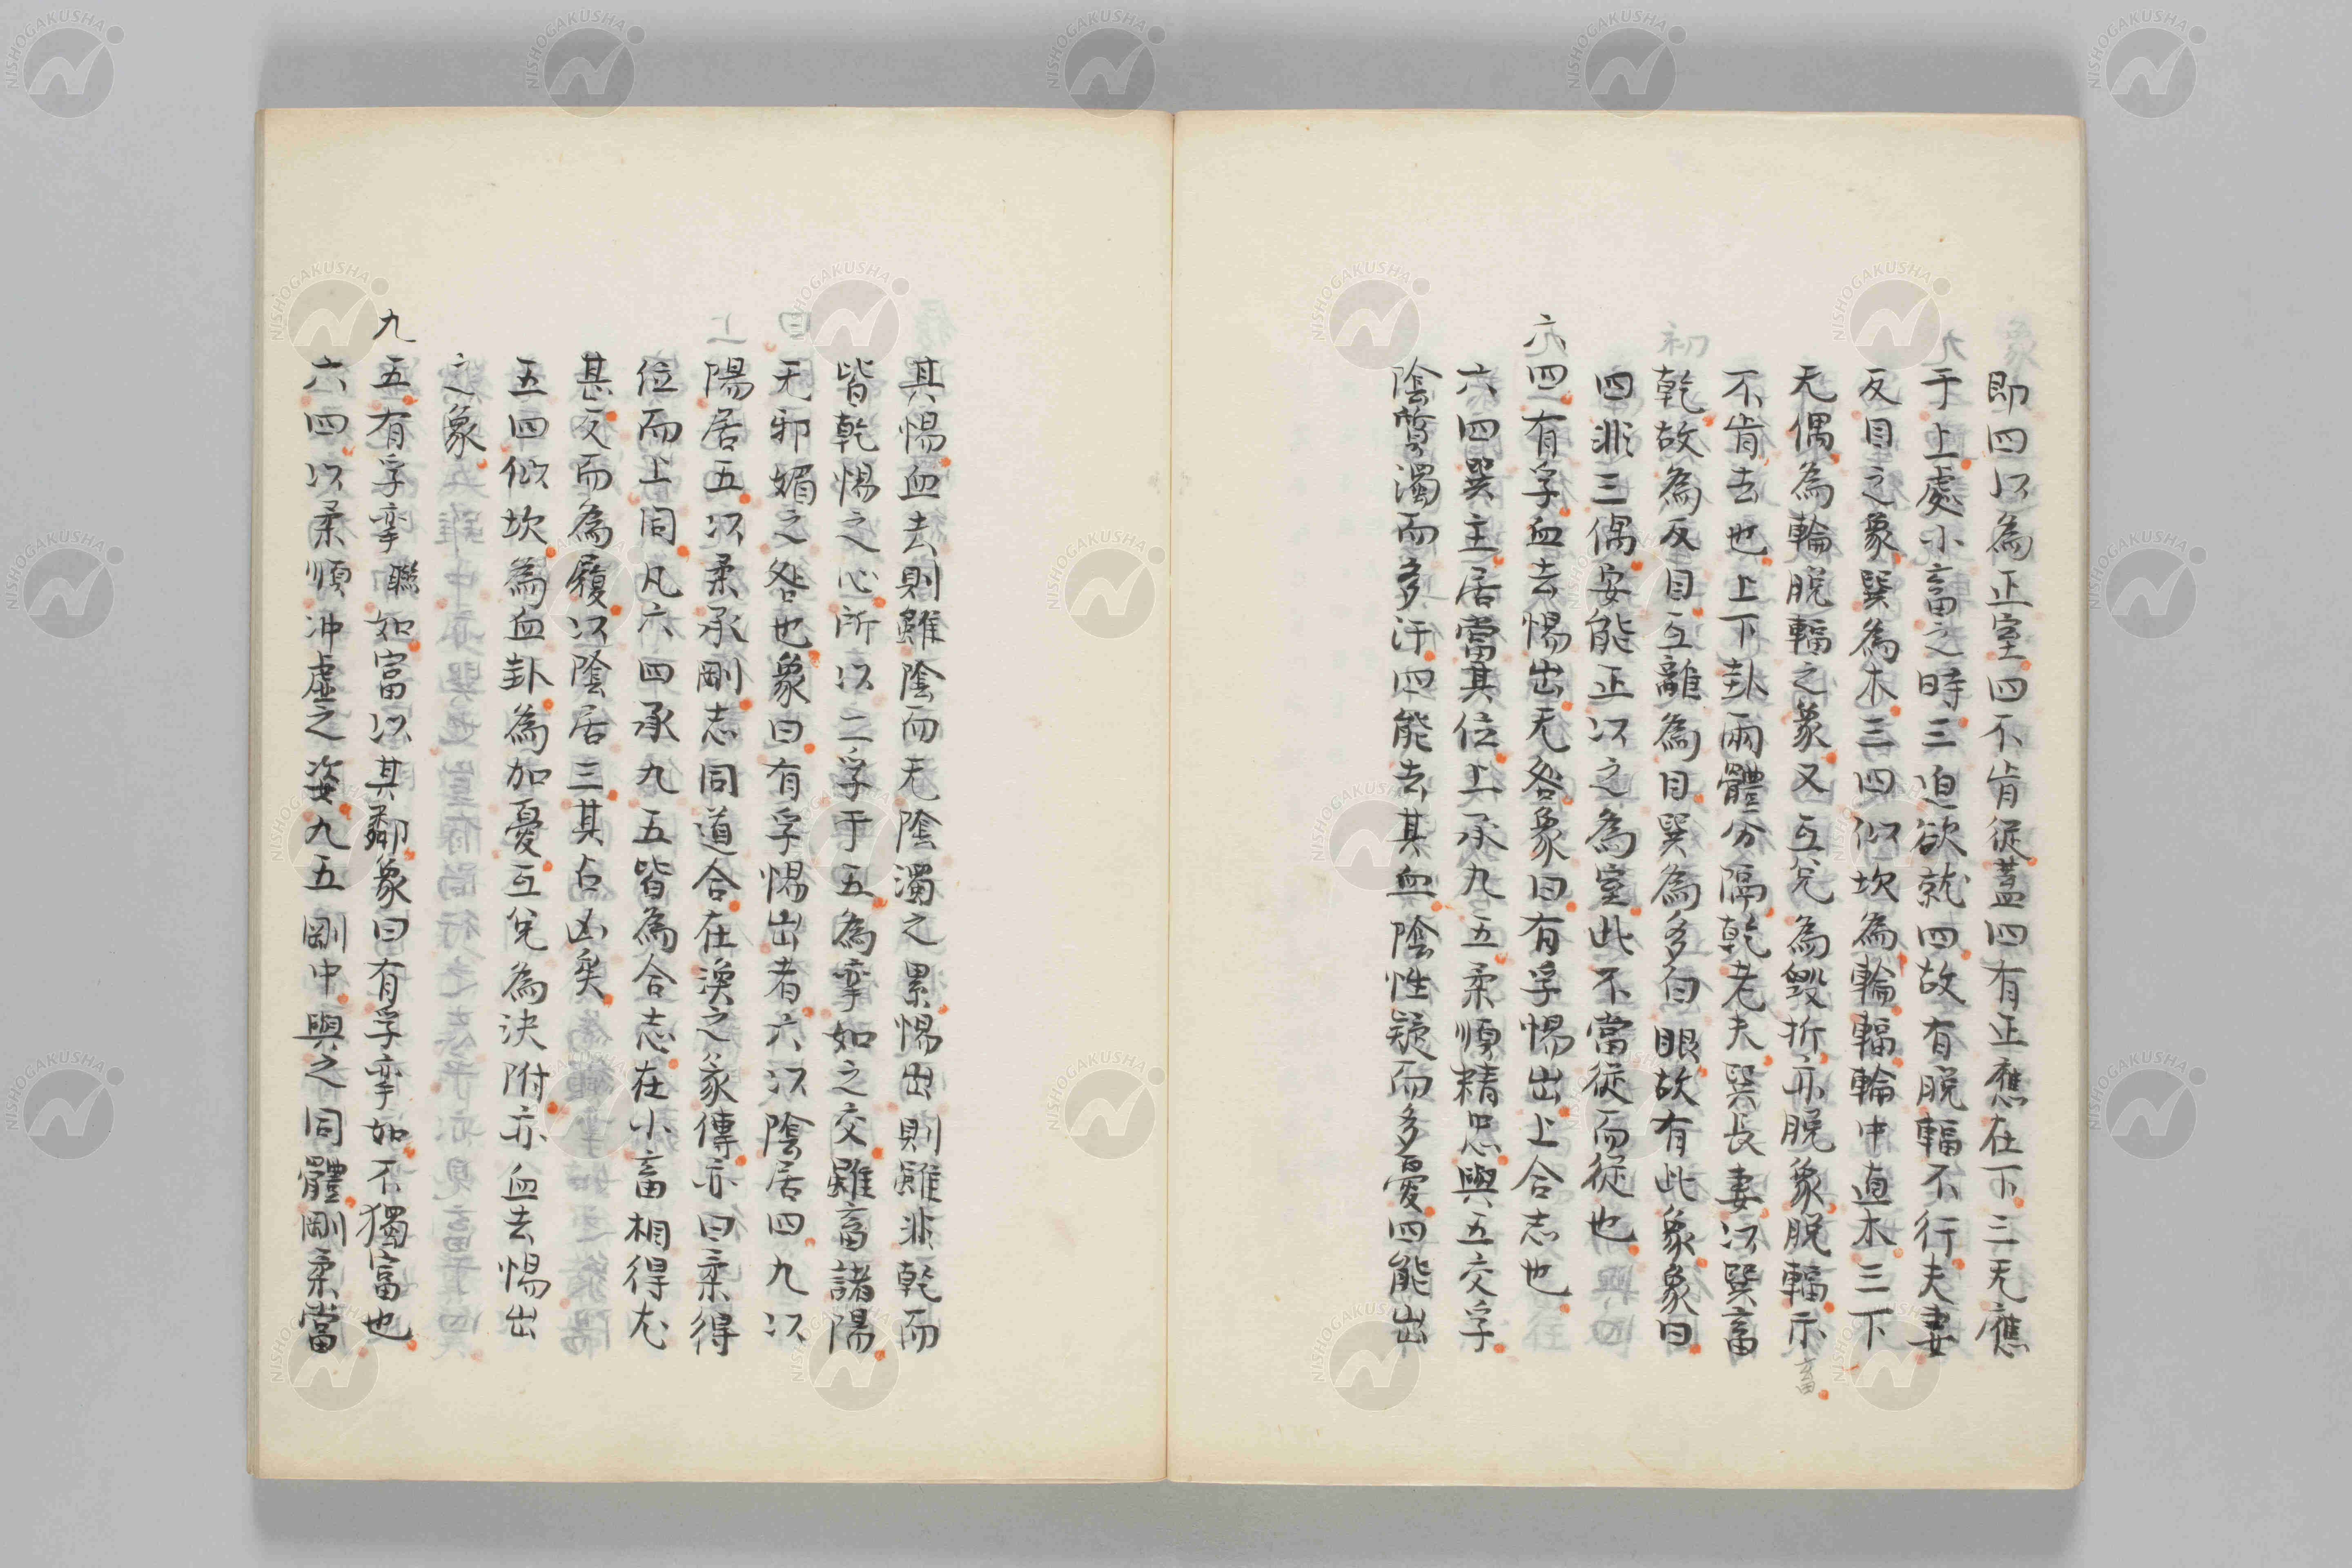 即四以為正室四不肯從蓋四有正應在下三无應
于上處小畜之時三迫欲就四故有脫輻不行夫妻
反目之象巽為木三四似坎為輪輻輪中直木三下
无偶為輪脫輻之象又互兌為毀折亦脫象脫輻示
畜
不肯去也上下卦兩體分隔乾老夫巽長妻以巽畜
乾故為反目互離為目巽為多白眼故有此象象曰
四非三偶安能正以之為室此不當從而從也
六四有孚血去惕出无咎象曰有孚惕出上合志也
六四巽主居當其位上承九五柔順精忠與五交孚
陰濁而多汙四能去其血陰性疑而多憂四能出
其惕血去則雖陰而无陰濁之累惕出則雖非乾而
皆乾惕之心所以二孚于五為攣如之交雖畜諸陽
无邪媚之咎也象曰有孚惕出者六以陰居四九以
陽居五以柔承剛志同道合在渙之彖傳亦曰柔得
位而上同凡六四承九五皆為合志在小畜相得尤
甚反而為履以陰居三其占凶矣
五四似坎為血卦為加憂互兌為決附亦血去惕出
之象
九五有孚攣聯如富以其鄰象曰有孚攣如不獨富也
六四以柔順沖虛之姿九五剛中與之同體剛柔當
NISHOGAKUSHA